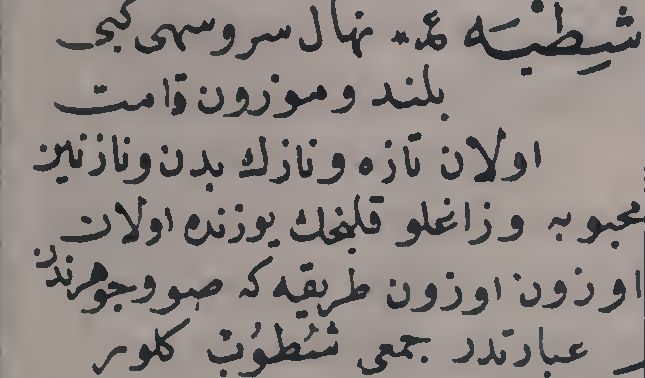 شِطْبَه ع‍ نهال سرو سهی کبی
بلند و موزون قامت
اولان تازه و نازك بدن و نازنین
محبوبه و زاغلو قلنجك یوزنده اولان
اوزون اوزون طریقه که صو و جوهرندن
عبارتدر جمعی شُطُوبْ کلور